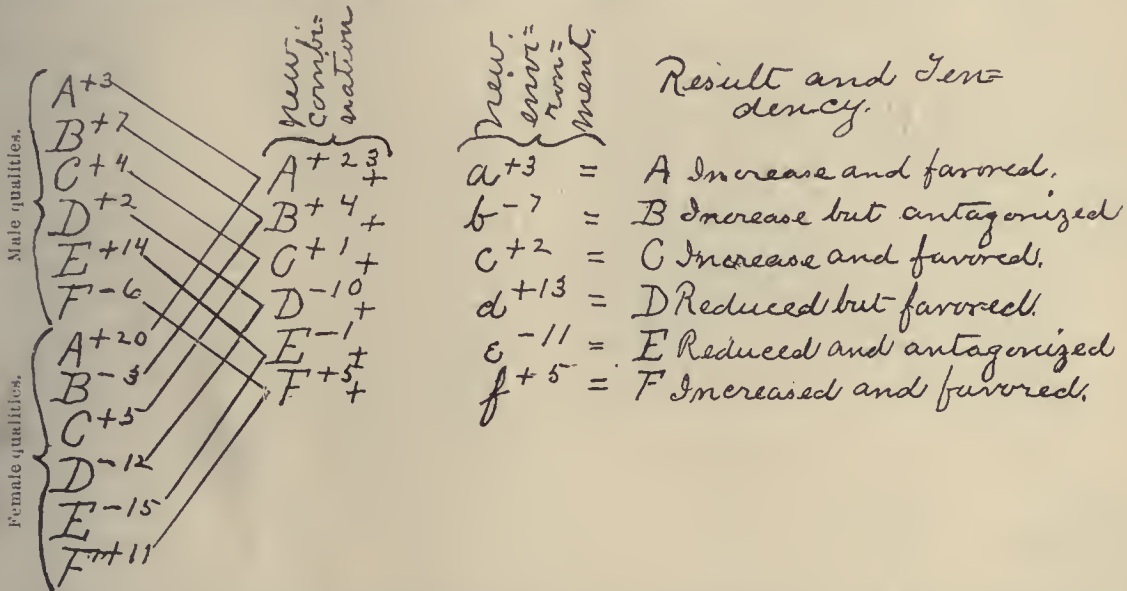 Male qualities.
A+3
B+7
C+4
D+2
E+14
F-6
Female qualities.
A+20
B-3
C+5
D-12
E-15
F+11
new
combi=
nation
A+23 +
B+4 +
C+1 +
D-10 +
E-1 +
F+5 +
new
envi=
ron=
ment.
a+3 =
b-7 =
c+2 =
d+13 =
e-11 =
f+5 =
Result and Ten=
dency.
A Increase and favored.
B Increase but antagonized
C Increase and favored.
D Reduced but favored.
E Reduced and antagonized
F Increased and favored.